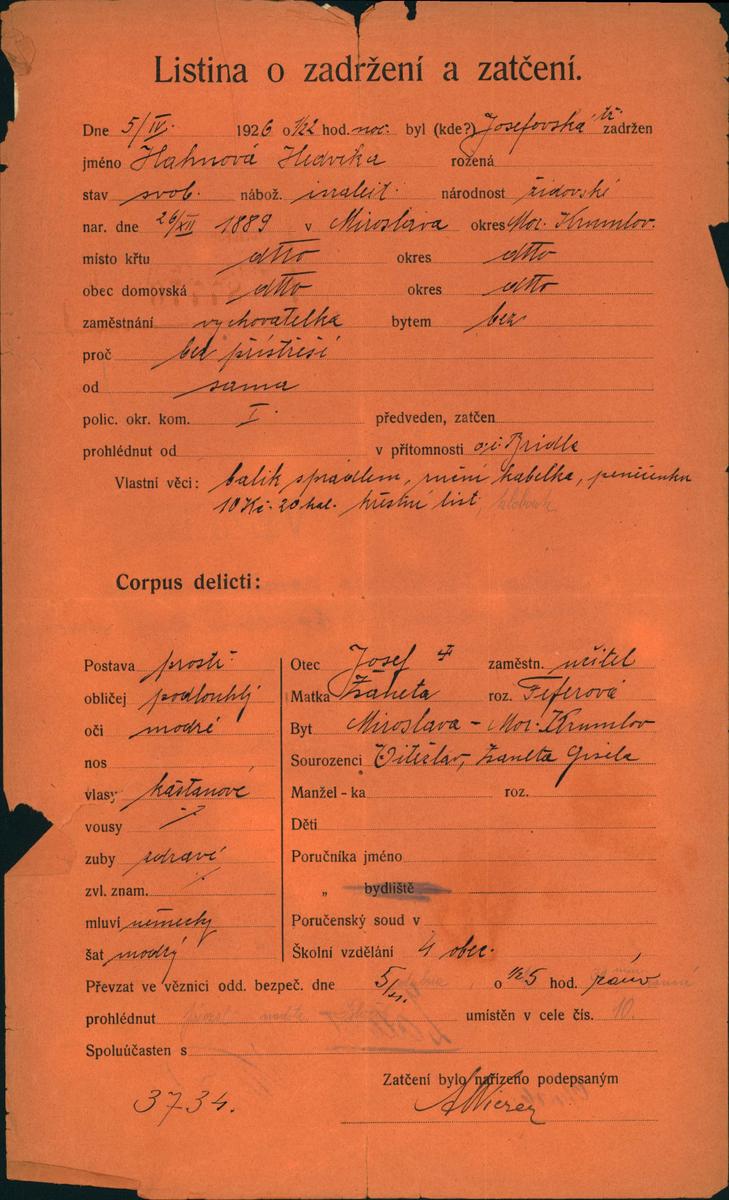 Listina o zadržení a zatčení.
Dne 5/IV. 1926 o 1/22 hod. noc. byl (kde?) Josefovská tř. zadržen
jméno Hahnová Hedvika rozená
stav svob. nábož. israelit. národnost židovské
nar. dne 26/XII 1889 v Miroslava okres Mor. Krumlov.
místo křtu dtto okres dtto
obec domovská dtto okres dtto
zaměstnání vychovatelka bytem bez
proč bez přístřeší
od sama
polic. okr. kom. I. předveden, zatčen
prohlédnut od v přítomnosti
Vlastní věci: balík s prádlem, ruční kabelka, peněženku
10 Kč. 20 hal. křestní list,
Corpus delicti:
Postava prostř. Otec Josef ‡ zaměstn. učitel
obličej podlouhlý Matka Žaneta roz. Feferová
oči modré Byt Miroslava - Mor. Krumlov
nos Sourozenci Vítěslav, Žaneta Gisela
vlasy kaštanové Manžel-ka roz.
vousy Děti
zuby zdravé Poručníka jméno
zvl. znam. „ bydliště
mluví německy Poručenský soud v
šat modrý Školní vzdělání 4 obec.
Převzat ve věznici odd. bezpeč. dne 5/IV. o 1/25 hod. ráno
prohlédnut umístěn v cele čís. 10.
Spoluúčasten s
Zatčení bylo nařízeno podepsaným
3734.